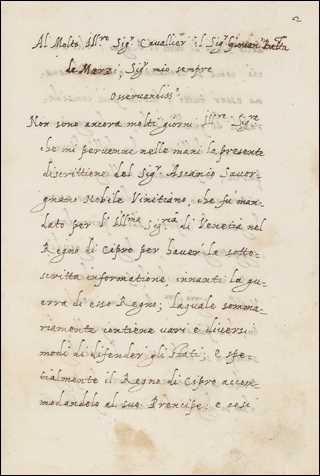 2
Al Molto Ill.re Sig.r Cavallier il Sig.r Giovan Batta
de Mara: Sig.r mio sempre
osservandiss.o
Non sono ancora molti giorni Ill.re Sig.re
che mi pervenne nelle mani la presente
discrittione del Sig.r Ascanio Savor-
gnano Nobile Vinitiano, che fù man-
dato per l'Ill.ma Sig.ria di Venetia nel
Regno di Cipro per haver la sotto-
scritta informatione innanti la gu-
erra di esso Regno; laquale somma-
riamente contiene vari e diversi
modi di difender gli stati; e spe-
tialmente il Regno di Cipro accom-
modandolo al suo Prencipe: e cosi